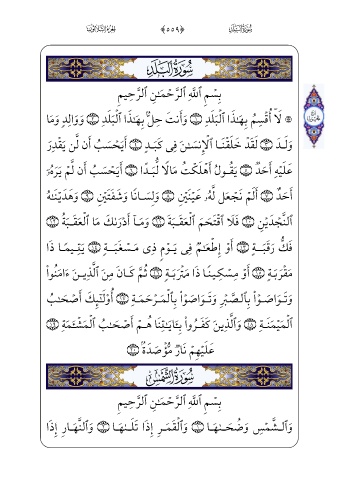 سُورَةُ البَلَدِ ﴿٥٥٩﴾ الجُزءُ الثَّلاثُونَ
سُورَةُ البَلَدِ
بِسْمِ ٱللَّهِ ٱلرَّحْمَٰنِ ٱلرَّحِيمِ
۞ لَآ أُقْسِمُ بِهَٰذَا ٱلْبَلَدِ ١ وَأَنتَ حِلٌّۢ بِهَٰذَا ٱلْبَلَدِ ٢ وَوَالِدٍ وَمَا
وَلَدَ ٣ لَقَدْ خَلَقْنَا ٱلْإِنسَٰنَ فِى كَبَدٍ ٤ أَيَحْسَبُ أَن لَّن يَقْدِرَ
عَلَيْهِ أَحَدٌ ٥ يَقُولُ أَهْلَكْتُ مَالًا لُّبَدًا ٦ أَيَحْسَبُ أَن لَّمْ يَرَهُۥٓ
أَحَدٌ ٧ أَلَمْ نَجْعَل لَّهُۥ عَيْنَيْنِ ٨ وَلِسَانًا وَشَفَتَيْنِ ٩ وَهَدَيْنَٰهُ
ٱلنَّجْدَيْنِ ١٠ فَلَا ٱقْتَحَمَ ٱلْعَقَبَةَ ١١ وَمَآ أَدْرَىٰكَ مَا ٱلْعَقَبَةُ ١٢
فَكُّ رَقَبَةٍ ١٣ أَوْ إِطْعَٰمٌ فِى يَوْمٍ ذِى مَسْغَبَةٍ ١٤ يَتِيمًا ذَا
مَقْرَبَةٍ ١٥ أَوْ مِسْكِينًا ذَا مَتْرَبَةٍ ١٦ ثُمَّ كَانَ مِنَ ٱلَّذِينَ ءَامَنُوا۟
وَتَوَاصَوْا۟ بِٱلصَّبْرِ وَتَوَاصَوْا۟ بِٱلْمَرْحَمَةِ ١٧ أُو۟لَٰٓئِكَ أَصْحَٰبُ
ٱلْمَيْمَنَةِ ١٨ وَٱلَّذِينَ كَفَرُوا۟ بِـَٔايَٰتِنَا هُمْ أَصْحَٰبُ ٱلْمَشْـَٔمَةِ ١٩
عَلَيْهِمْ نَارٌ مُّؤْصَدَةٌۢ ٢٠
سُورَةُ الشَّمْسِ
بِسْمِ ٱللَّهِ ٱلرَّحْمَٰنِ ٱلرَّحِيمِ
وَٱلشَّمْسِ وَضُحَىٰهَا ١ وَٱلْقَمَرِ إِذَا تَلَىٰهَا ٢ وَٱلنَّهَارِ إِذَا